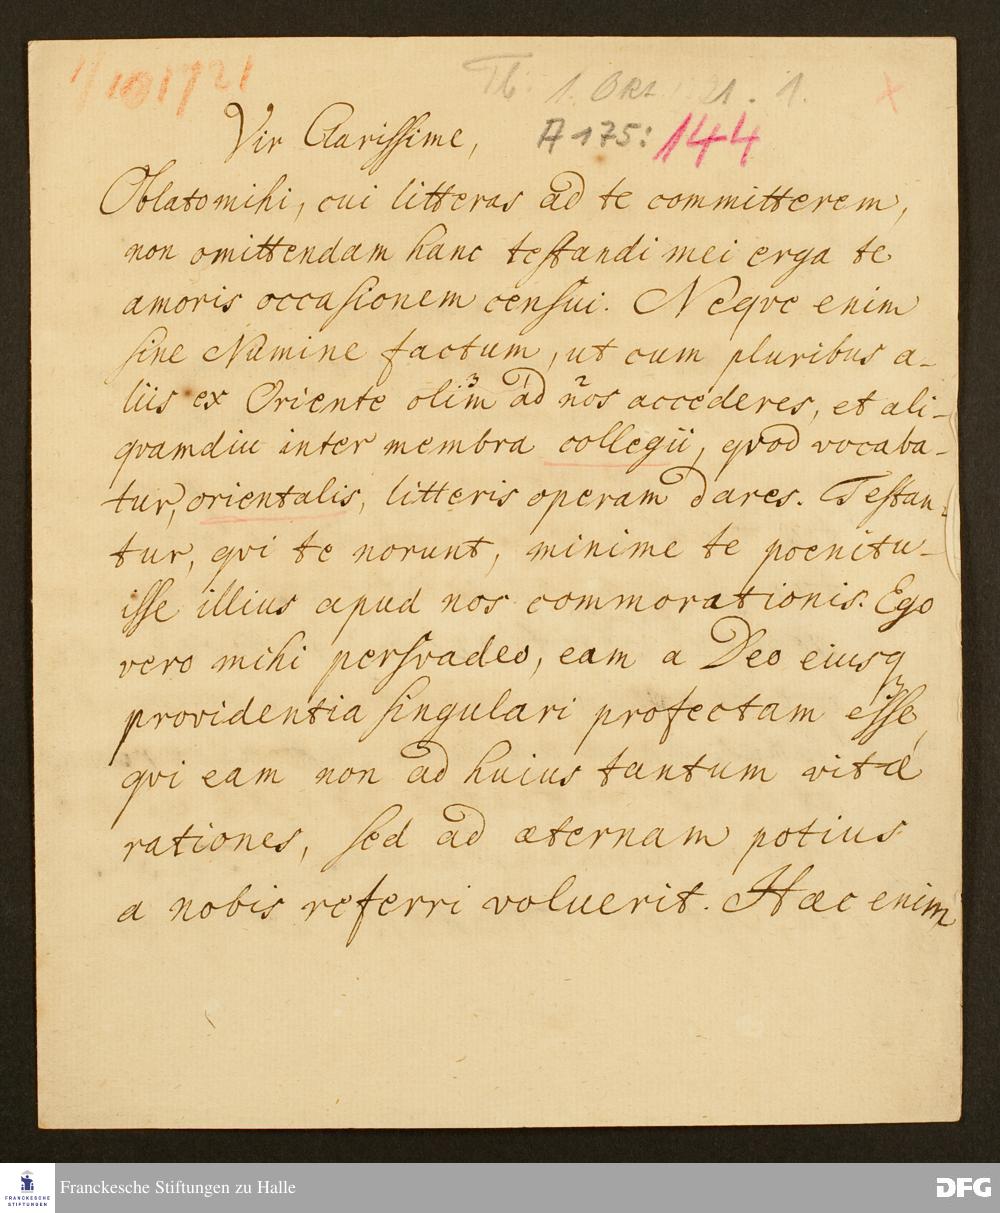 1/10 1721
Th: 1. Oct. 1721. 1.
A 175: 144
Vir Clarissime,
Oblato mihi, cui litteras ad te committerem,
non omittendam hanc testandi mei erga te
amoris occasionem censui. Neqve enim
sine Numine factum, ut cum pluribus a-
liis ex Oriente olim ad nos accederes, et ali-
qvamdiu inter membra collegii, qvod vocaba-
tur, orientalis, litteris operam dares. Testan-
tur, qvi te norunt, minime te poenitu-
isse illius apud nos commorationis. Ego
vero mihi persvadeo, eam a Deo eiusq
providentia singulari profectam esse,
qvi eam non ad huius tantum vitæ
rationes, sed ad æternam potius
a nobis referri voluerit. Haec enim
FRANCKESCHE
STIFTUNGEN
Franckesche Stiftungen zu Halle
DFG